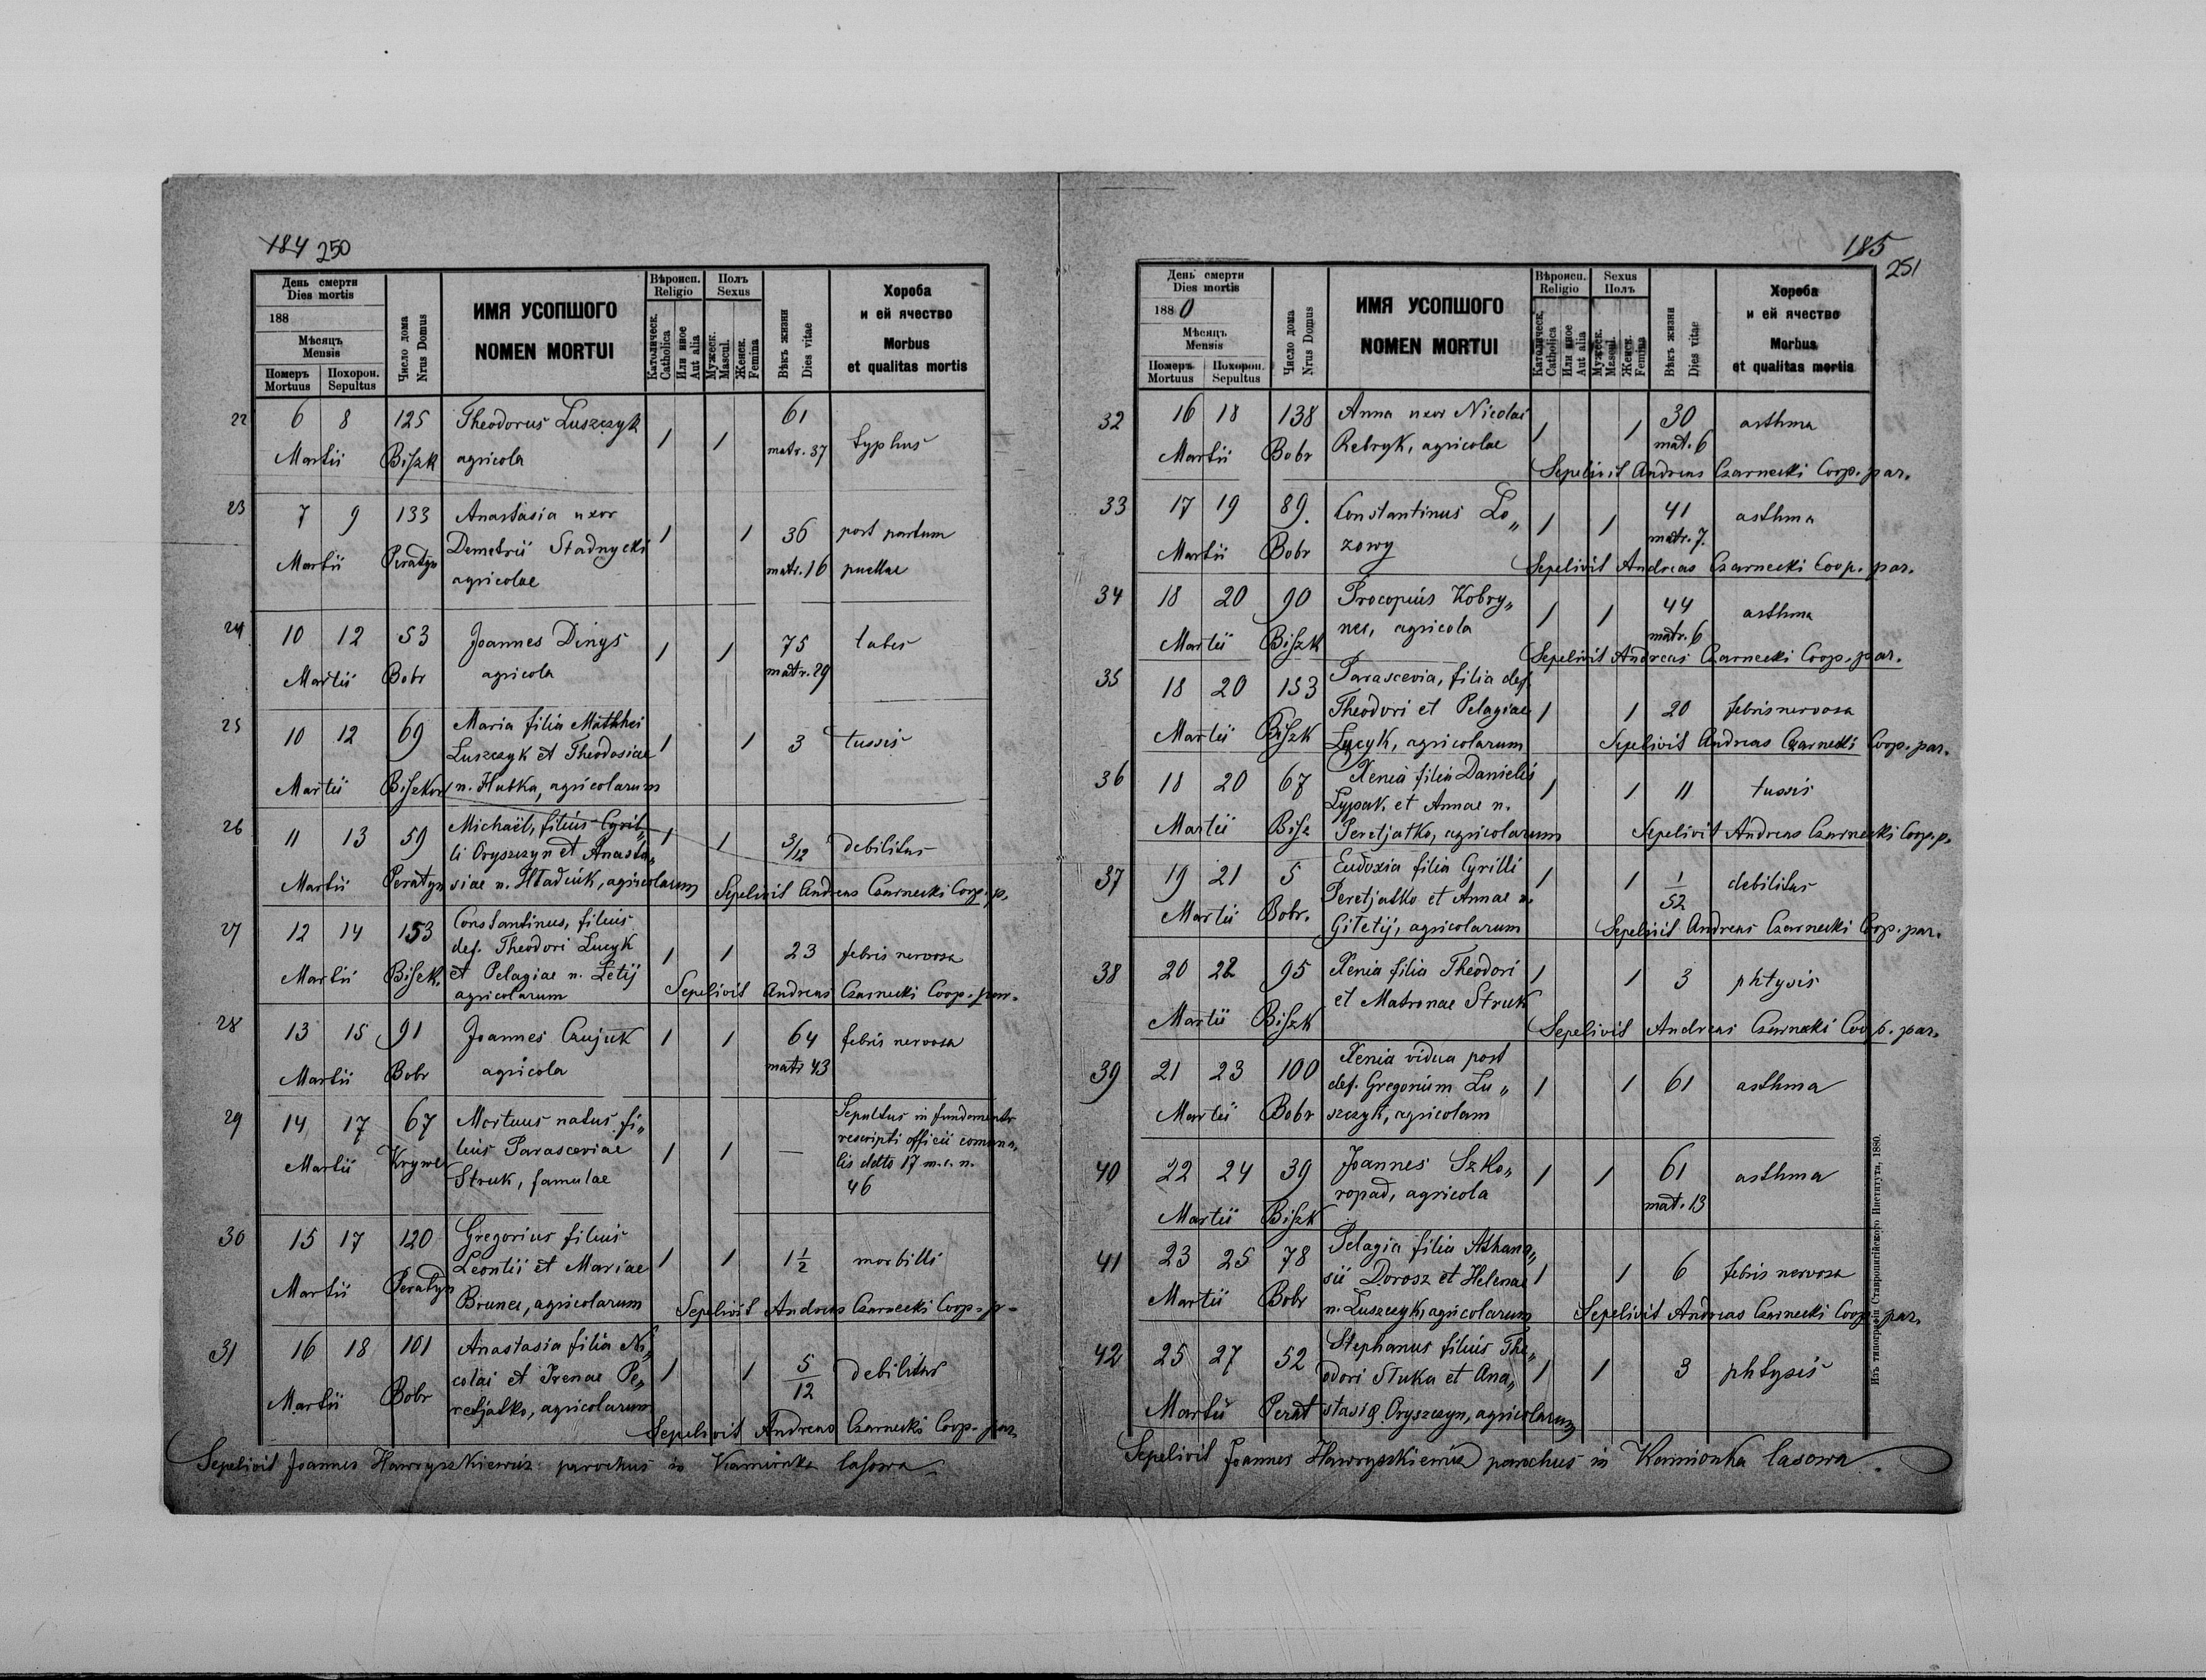 184 250
День смерти
Dies mortis
188
Мѣсяцъ
Mensis
Номеръ Похорон.
Mortuus Sepultus
Число дома
Nrus Domus
ИМЯ УСОПШОГО
NOMEN MORTUI
Вѣроисп.
Religio
Католическ.
Catholica
Или иное
Aut alia
Полъ
Sexus
Мужеск.
Mascul.
Женск.
Femina
Вѣкъ жизни
Dies vitae
Хороба
и ей ячество
Morbus
et qualitas mortis
22 6 8 125 Theodorus Łuszczyk 1 1 61 typhus
Martii Biszk agricola matr. 37
23 7 9 133 Anastasia uxor 1 1 36 post partum
Martii Peratyn Demetrii Stadnycki matr. 16 puellae
agricolae
24 10 12 53 Joannes Dinys 1 1 75 tabes
Martii Bobr agricola matr. 29
25 10 12 69 Maria filia Matthei 1 1 3 tussis
Łuszczyk et Theodosiae
Martii Biszkow n. Hutka, agricolarum
26 11 13 59 Michaël, filius Cyril„ 1 1 3/12 debilitas
li Oryszczyn et Anasta„
Martii Peratyn siae n. Hładiuk, agricolarum Sepelivit Andreas Czarnecki Coop. p.
27 12 14 153 Constantinus, filius 1 1 23 febris nervosa
def. Theodori Lucyk
Martii Biszk. et Pelagiae n. Letij
agricolarum Sepelivit Andreas Czarnecki Coop. par.
28 13 15 91 Joannes Czujuk 1 1 64 febris nervosa
Martii Bobr agricola matr 43
29 14 17 67 Mortuus natus fi„ 1 1 — Sepultus in fundamento
Martii Krywe lius Parasceviae rescripti officii comuna„
Struk, famulae lis ddto 17 m. c. n.
46
30 15 17 120 Gregorius filius 1 1 1 1/2 morbilli
Martii Peratyn Leontii et Mariae
Brunec, agricolarum Sepelivit Andreas Czarnecki Coop. p.
31 16 18 101 Anastasia filia Ni„ 1 1 5/12 debilitas
colai et Irenae Pe„
Martii Bobr retjatko, agricolarum
Sepelivit Andreas Czarnecki Coop. par.
Sepelivit Joannes Hawryszkiewicz parochus in Kamionka lasowa
185
251
День смерти
Dies mortis
1880
Мѣсяцъ
Mensis
Номеръ Похорон.
Mortuus Sepultus
Число дома
Nrus Domus
ИМЯ УСОПШОГО
NOMEN MORTUI
Вѣроисп.
Religio
Католическ.
Catholica
Или иное
Aut alia
Sexus
Полъ
Мужеск.
Mascul.
Женск.
Femina
Вѣкъ жизни
Dies vitae
Хороба
и ей ячество
Morbus
et qualitas mortis
32 16 18 138 Anna uxor Nicolai 1 1 30 asthma
Martii Bobr Rebryk, agricolae mat. 6
Sepelivit Andreas Czarnecki Coop. par.
33 17 19 89. Constantinus Lo„ 1 1 41 asthma
Martii Bobr zowy matr. 7.
Sepelivit Andreas Czarnecki Coop. par.
34 18 20 90 Procopius Kobry„ 1 1 44 asthma
Martii Biszk nec, agricola matr. 6
Sepelivit Andreas Czarnecki Coop. par.
35 18 20 153 Parascevia, filia def. 1 1 20 febris nervosa
Theodori et Pelagiae
Martii Biszk Lucyk, agricolarum Sepelivit Andreas Czarnecki Coop. par.
36 18 20 67 Xenia filia Danielis 1 1 11 tussis
Lypak et Annae n.
Martii Bisz Peretjatko, agricolarum Sepelivit Andreas Czarnecki Coop. p.
37 19 21 5 Eudoxia filia Cyrilli 1 1 1/52 debilitas
Peretjatko et Annae n.
Martii Bobr. Gitetij, agricolarum Sepelivit Andreas Czarnecki Coop. par.
38 20 22 95 Xenia filia Theodori 1 1 3 phtysis
et Matronae Struk
Martii Biszk Sepelivit Andreas Czarnecki Coop. par.
39 21 23 100 Xenia vidua post 1 1 61 asthma
def. Gregorium Łu„
Martii Bobr szczyk, agricolam
40 22 24 39 Joannes Szko„ 1 1 61 asthma
ropad, agricola mat. 13
Martii Biszk
41 23 25 78 Pelagia filia Athana„ 1 1 6 febris nervosa
sii Dorosz et Helenae
Martii Bobr n. Łuszczyk, agricolarum Sepelivit Andreas Czarnecki Coop. par.
42 25 27 52 Stephanus filius The„ 1 1 3 phtysis
odori Stuka et Ana„
Martii Perat stasia Oryszczyn, agricolarum
Sepelivit Joannes Hawryszkiewicz parochus in Kamionka lasowa.
Изъ типографіи Ставропигійского Института, 1880.